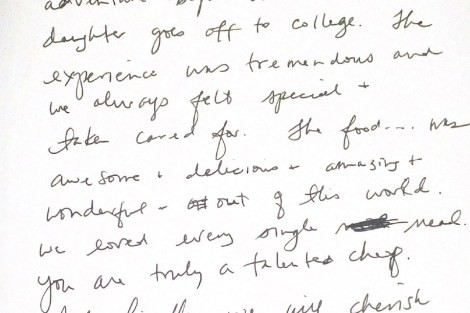 adventure
daughter goes off to college. The
experience was tremendous and
we always felt special +
taken cared for. The food... was
awesome + delicious + amazing +
wonderful - out of this world.
we loved every single meal.
you are truly a talented chef.
we will cherish